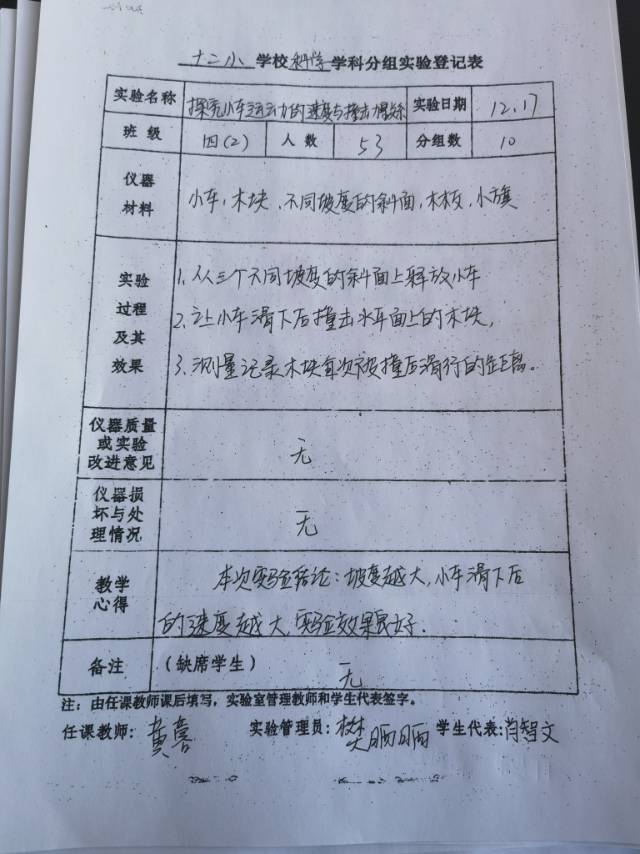 十二小 学校 科学 学科分组实验登记表
实验名称 探究小车运动的速度与撞击力 实验日期 12.17
班级 四(2) 人数 53 分组数 10
仪器材料 小车,木块、不同坡度的斜面,木板,小旗
实验过程及其效果
1、从三个不同坡度的斜面上释放小车
2、让小车滑下后撞击水平面上的木块,
3、测量记录木块每次被撞后滑行的距离。
仪器质量或实验改进意见 无
仪器损坏与处理情况 无
教学心得 本次实验结论:坡度越大,小车滑下后
的速度越大,实验效果良好.
备注 (缺席学生) 无
注:由任课教师课后填写,实验室管理教师和学生代表签字。
任课教师: 黄喜 实验管理员: 樊晒晒 学生代表:肖智文